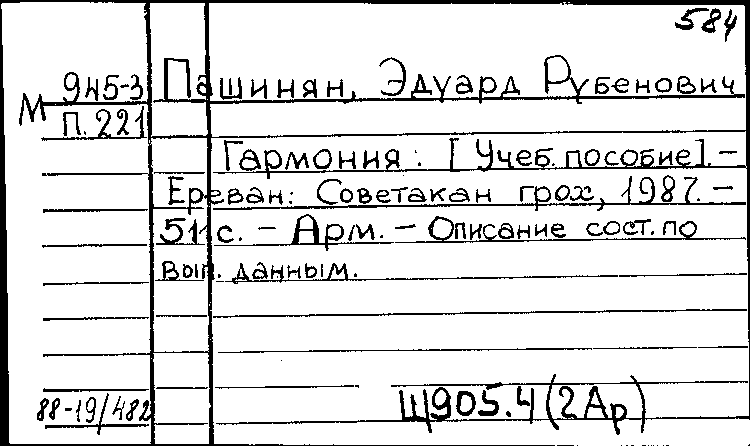 584
М 945-3
П. 221
Пашинян, Эдуард Рубенович
Гармония: [Учеб. пособие]. –
Ереван: Советакан грох, 1987. –
511 с. – Арм. – Описание сост. по
вып. данным.
88-19/482
Щ905.4(2Ар)